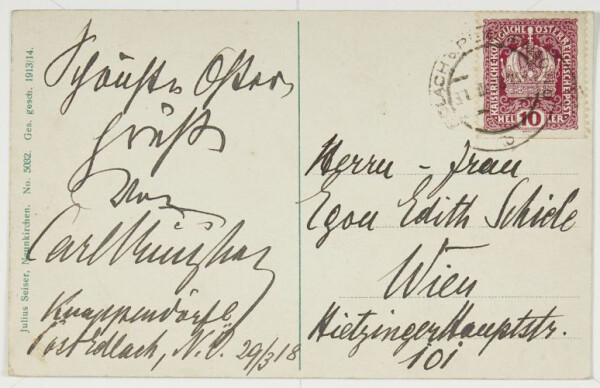 Julius Seiser, Neunkirchen. No. 5032. Ges. gesch. 1913/14.
Schönste Oster
grüße
von
Carl
Knappendörfl
Post Edlach, N.Ö. 29/3 18
KAISERLICHE KÖNIGLICHE ÖSTERREICHISCHE POST
HELLER 10
Herrn - Frau
Egon Edith Schiele
Wien
Hietzinger Hauptstr.
101